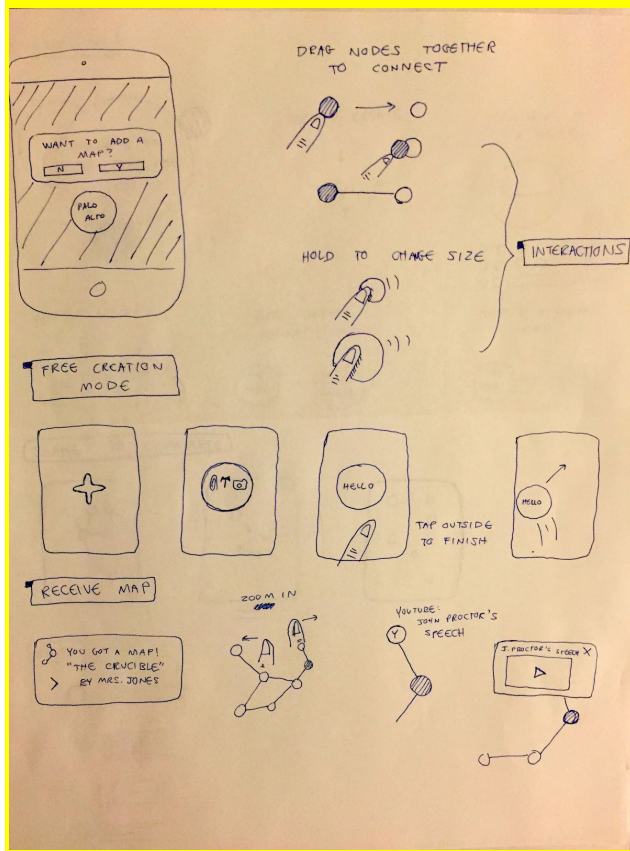 WANT TO ADD A
MAP?
N Y
PALO
ALTO
DRAG NODES TOGETHER
TO CONNECT
HOLD TO CHANGE SIZE
INTERACTIONS
FREE CREATION
MODE
HELLO
TAP OUTSIDE
TO FINISH
HELLO
RECEIVE MAP
YOU GOT A MAP!
"THE CRUCIBLE"
BY MRS. JONES
ZOOM IN
YOUTUBE:
JOHN PROCTOR'S
SPEECH
Y
J. PROCTOR'S SPEECH X